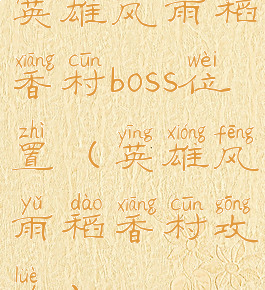 英雄风雨稻
xiāng cūn wèi
香村boss位
zhì yīng xióng fēng
置(英雄风
yǔ dào xiāng cūn gōng
雨稻香村攻
lüè